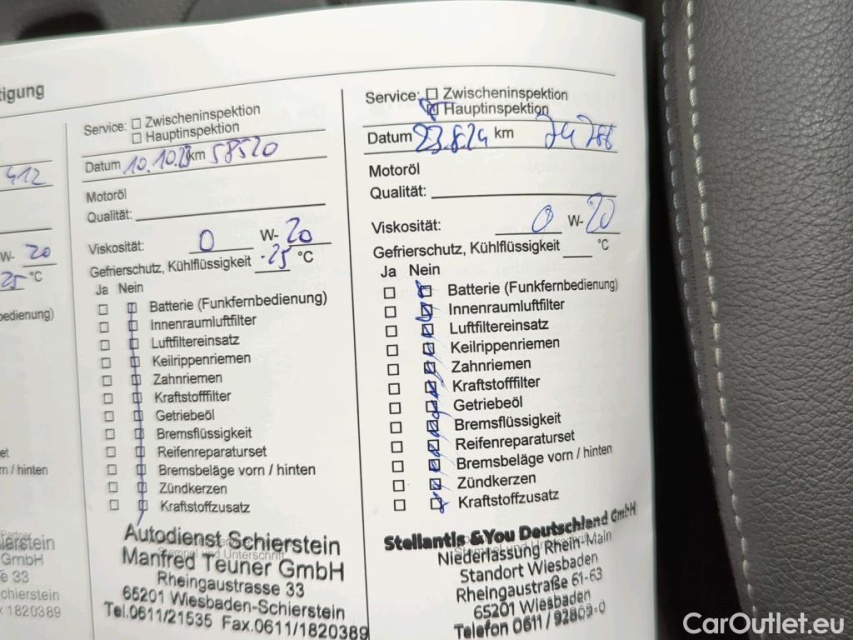 tigung
412
W- 20
25 °C
bedienung)
et
rn / hinten
ierstein
GmbH
e 33
x 1820389
Service: Zwischeninspektion
Hauptinspektion
Datum 10.10.23 km 58520
Motoröl
Qualität:
Viskosität: 0 W- 20
Gefrierschutz, Kühlflüssigkeit -25 °C
Ja Nein
Batterie (Funkfernbedienung)
Innenraumluftfilter
Luftfiltereinsatz
Keilrippenriemen
Zahnriemen
Kraftstofffilter
Getriebeöl
Bremsflüssigkeit
Reifenreparaturset
Bremsbeläge vorn / hinten
Zündkerzen
Kraftstoffzusatz
Autodienst Schierstein
Stempel und Unterschrift
Manfred Teuner GmbH
Rheingaustrasse 33
65201 Wiesbaden-Schierstein
Tel.0611/21535 Fax.0611/1820389
Service: Zwischeninspektion
Hauptinspektion
Datum 23.8.24 km 74788
Motoröl
Qualität:
Viskosität: 0 W- 20
Gefrierschutz, Kühlflüssigkeit °C
Ja Nein
Batterie (Funkfernbedienung)
Innenraumluftfilter
Luftfiltereinsatz
Keilrippenriemen
Zahnriemen
Kraftstofffilter
Getriebeöl
Bremsflüssigkeit
Reifenreparaturset
Bremsbeläge vorn / hinten
Zündkerzen
Kraftstoffzusatz
Stellantis &You Deutschland GmbH
Niederlassung Rhein-Main
Standort Wiesbaden
Rheingaustraße 61-63
65201 Wiesbaden
Telefon 0611 / 92809-0
CarOutlet.eu